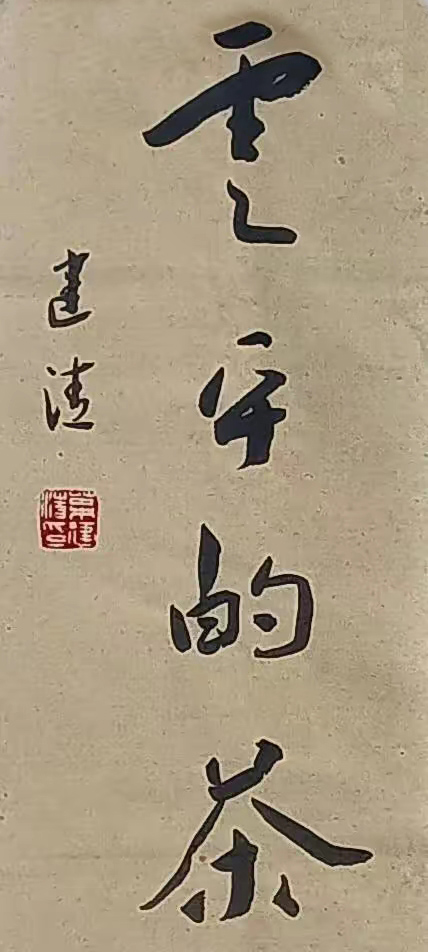 雲平的茶
建清